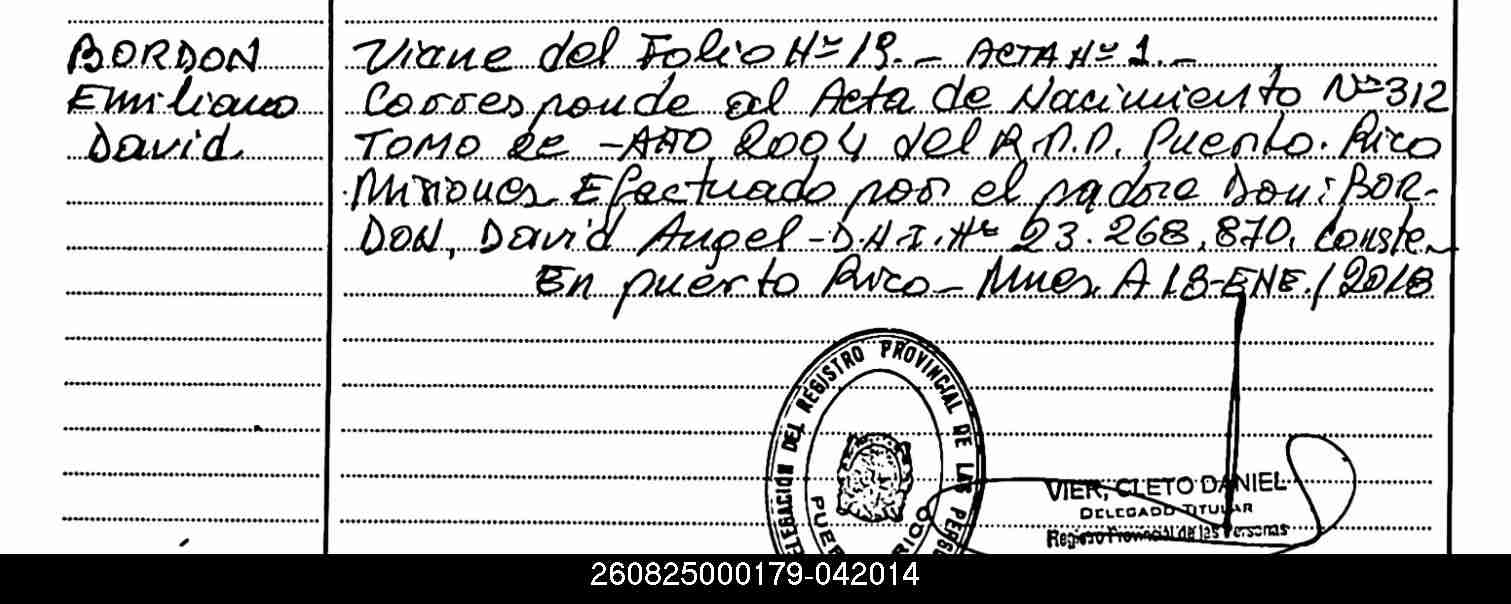 BORDON
Emiliano
David
Viene del Folio Nº 19.- ACTA Nº 1.-
Corresponde al Acta de Nacimiento Nº 312
TOMO 2º -AÑO 2004 del R.P.P. Puerto Rico
Misiones Efectuado por el padre Don: BOR-
DON, David Angel - D.N.I. Nº 23.268.870. Conste.-
En puerto Rico - Mnes. A 19-ENE./2018
DELEGACION DEL REGISTRO PROVINCIAL DE LAS PERSO
PUER RICO
VIER, CLETO DANIEL
DELEGADO TITULAR
Registro Provincial de las Personas
260825000179-042014